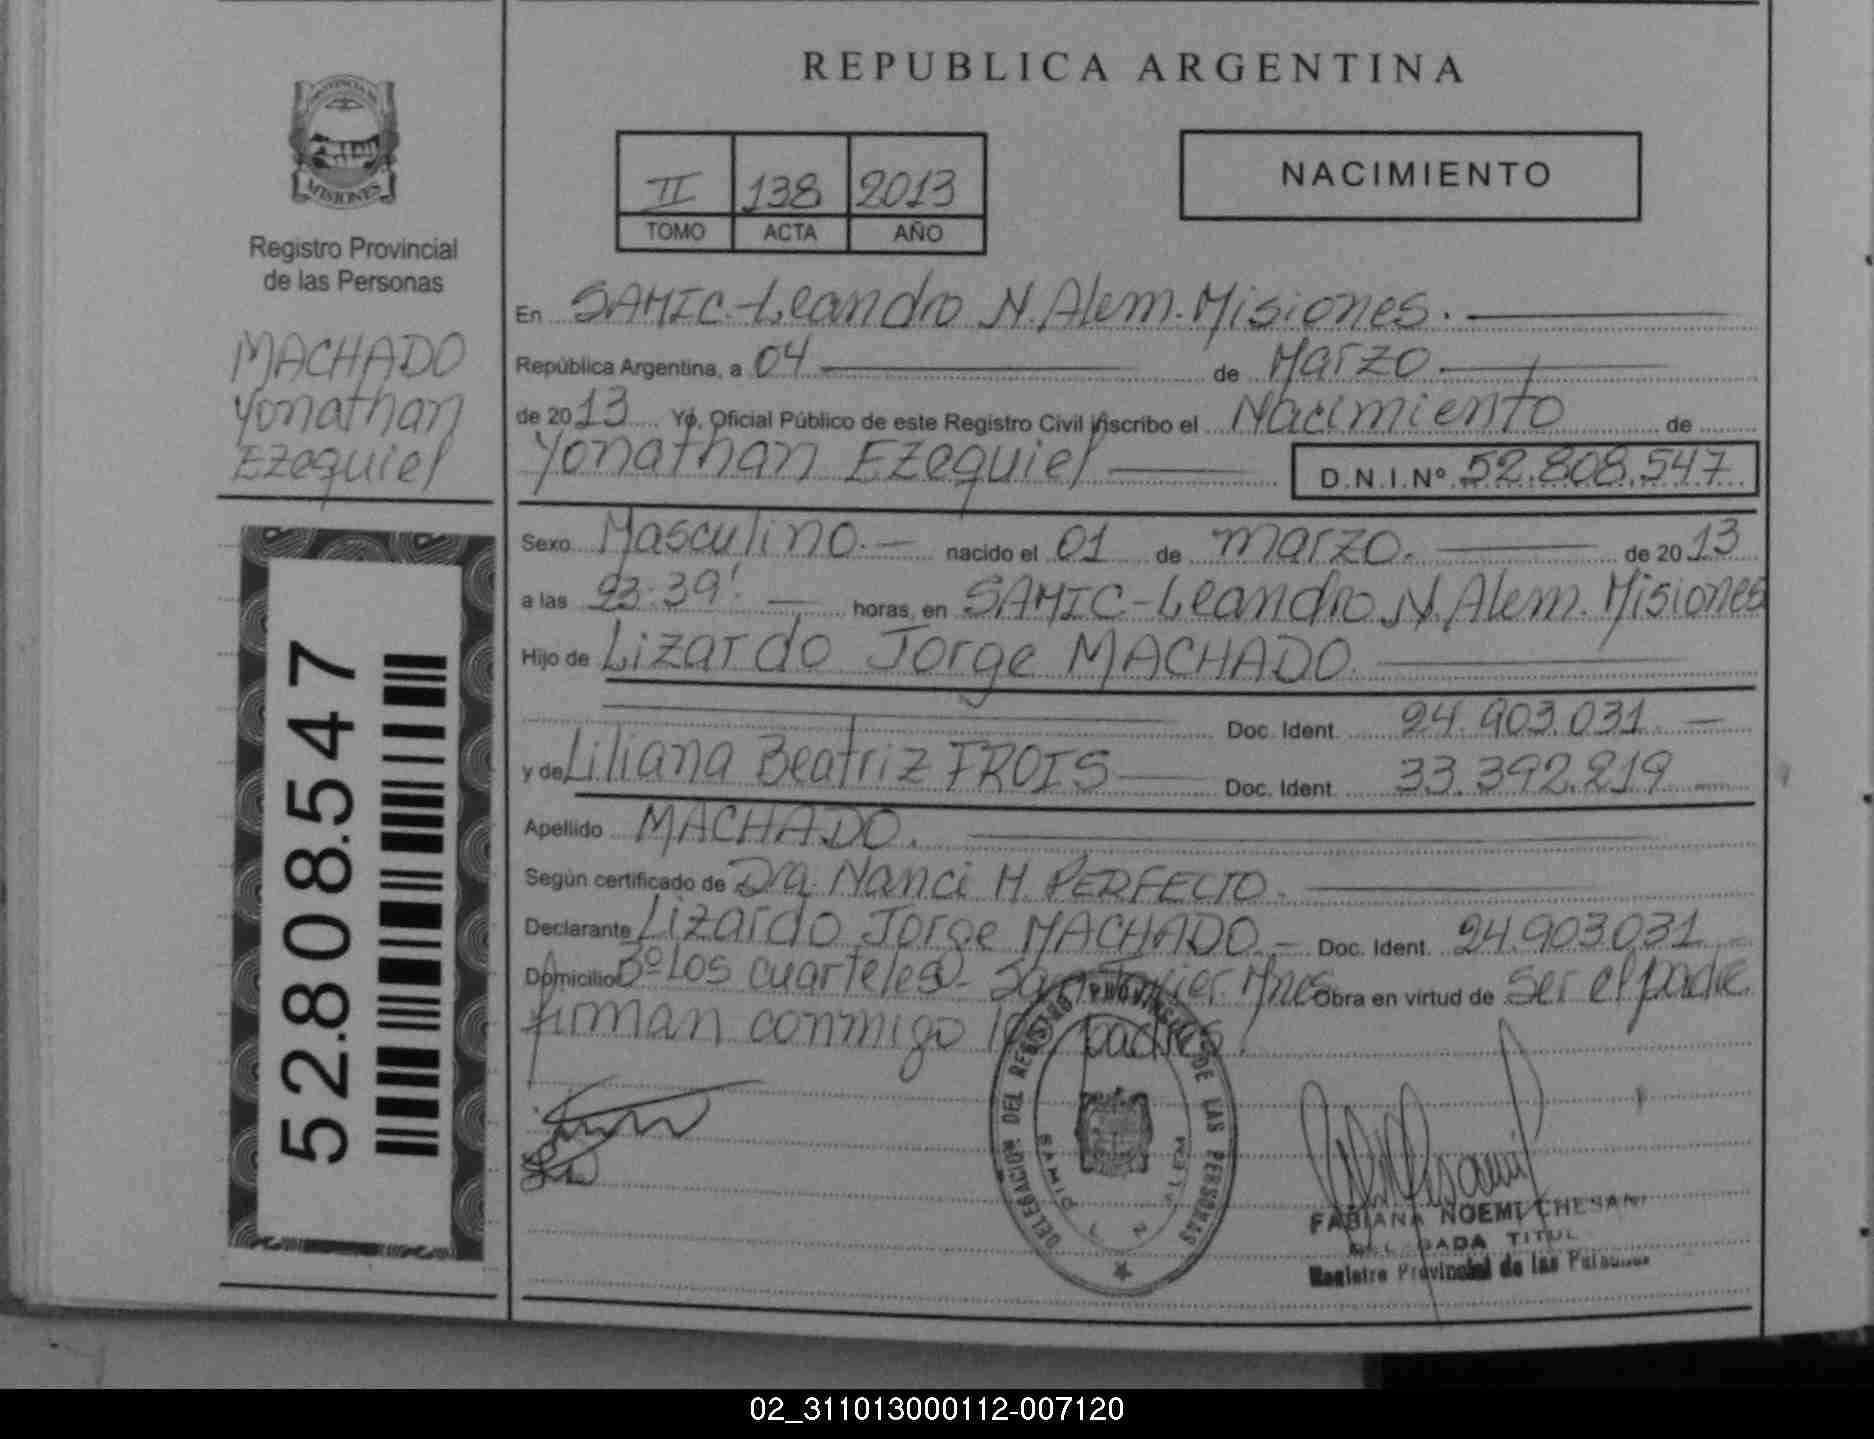 REPUBLICA ARGENTINA
PROVINCIA DE
MISIONES
Registro Provincial
de las Personas
MACHADO
Yonathan
Ezequiel
52.808.547
II 138 2013
TOMO ACTA AÑO
NACIMIENTO
En SAMIC-Leandro N. Alem. Misiones.
República Argentina, a 04 de Marzo
de 2013 Yo, Oficial Público de este Registro Civil inscribo el Nacimiento de
Yonathan Ezequiel D.N.I.Nº 52.808.547
Sexo Masculino. nacido el 01 de marzo. de 2013
a las 23:39' horas, en SAMIC-Leandro N. Alem. Misiones
Hijo de Lizardo Jorge MACHADO.
Doc. Ident. 24.903.031.
y de Liliana Beatriz FROIS Doc. Ident. 33.392.219
Apellido MACHADO.
Según certificado de Dra. Nanci H. PERFECTO.
Declarante Lizardo Jorge MACHADO. Doc. Ident. 24.903.031
Domicilio Bº Los cuarteles - San Javier Mnes Obra en virtud de ser el padre
firman conmigo los padres.
DELEGACION DEL REGISTRO PROVINCIAL DE LAS PERSONAS
FABIANA NOEMI CHESANI
DELEGADA TITUL
Registro Provincial de las Personas
02_311013000112-007120